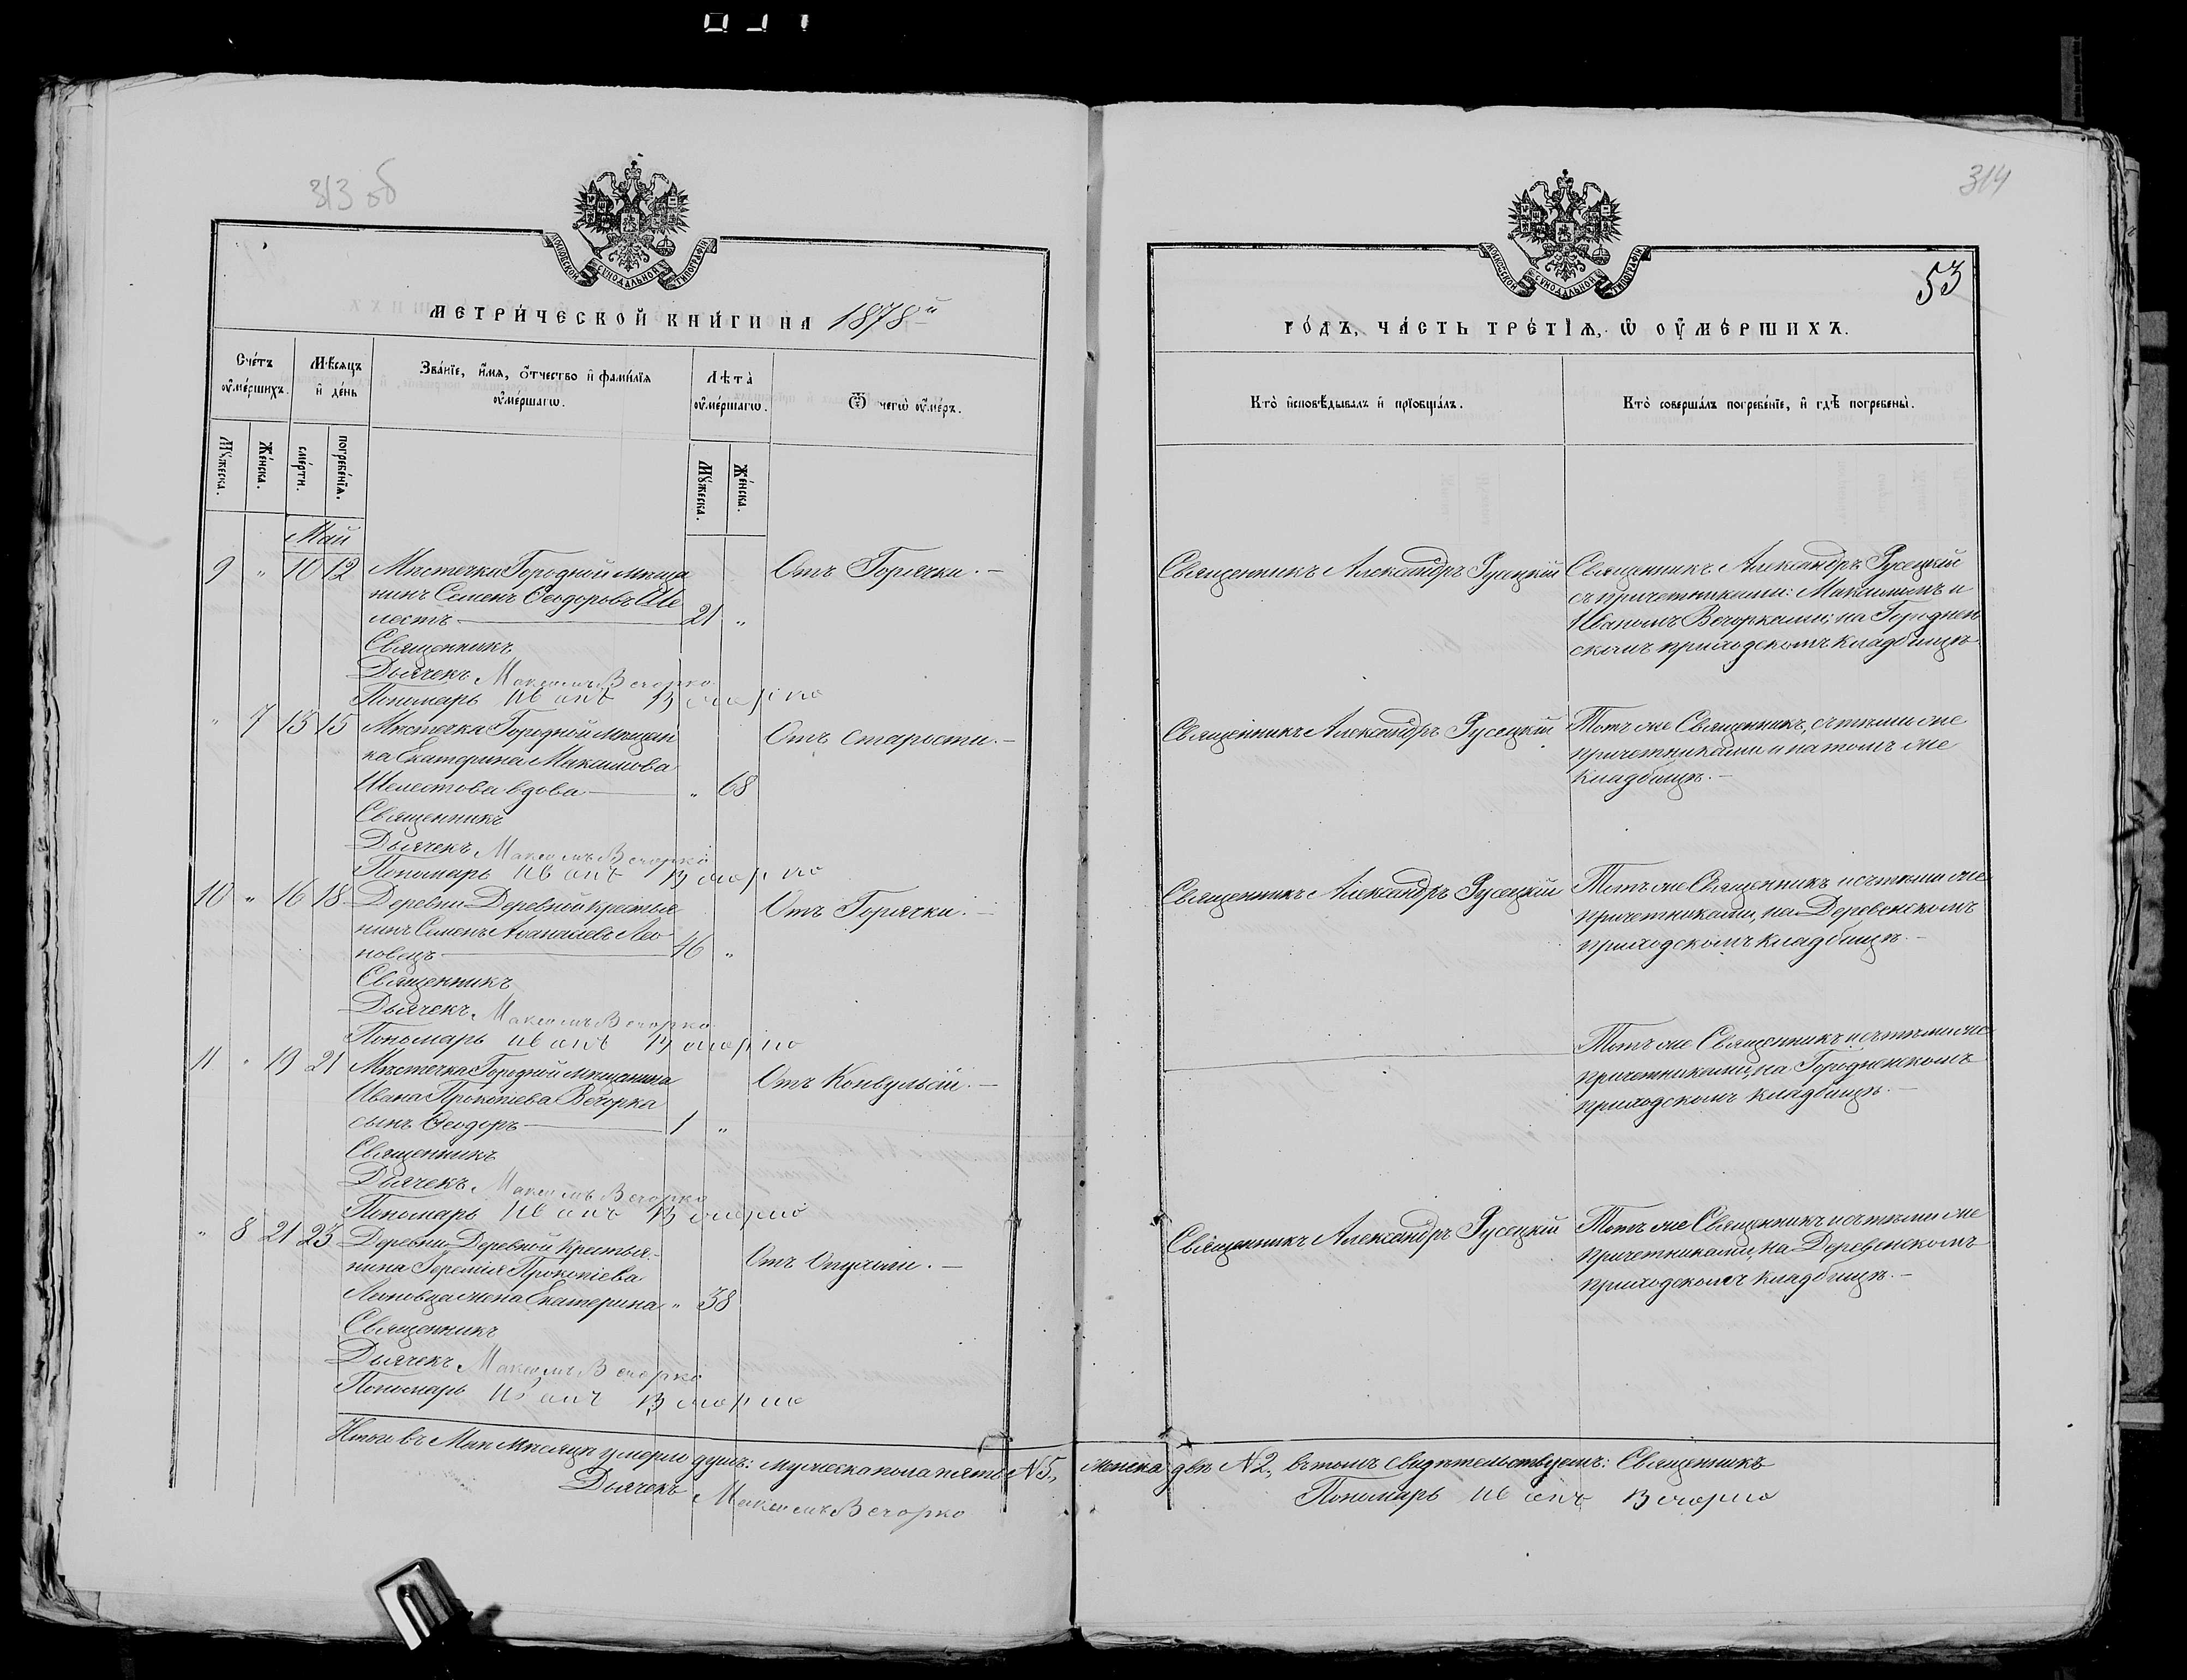 313 об
МОСКОВСКОЙ СѴНОДАЛЬНОЙ ТИПОГРАФІИ
МЕТРИ́ЧЕСКОЙ КНИ́ГИ НА 1878й
Сче́тъ оу҆ме́ршихъ.
Мѣ́сяцъ и҆ де́нь
Зва́нїе, и҆́мѧ, ѻ҆́тчество и҆ фами́лїѧ оу҆ме́ршагѡ.
Лѣ́та оу҆ме́ршагѡ.
Ѿ чегѡ̀ оу҆́меръ.
Мꙋ́жеска.
Же́нска.
сме́рти.
погребе́нїѧ.
Мꙋ́жеска.
Же́нска.
Май
9 " 10 12 Мѣстечка Городной мѣща
нинъ Семенъ Ѳеодоровъ Ше
лестъ 21 " Отъ Горячки.
Священникъ
Дьячекъ Максимъ Вечорко
Пономарь Иванъ Вечорко
" 7 13 15 Мѣстечка Городной мѣщан
ка Екатерина Максимова
Шелестова вдова " 68 Отъ старости.
Священникъ
Дьячекъ Максимъ Вечорко
Пономарь Иванъ Вечорко
10 " 16 18 Деревни Деревной крестья
нинъ Семенъ Аѳанасіевъ Ле
новецъ 46 " Отъ Горячки.
Священникъ
Дьячекъ Максимъ Вечорко
Пономарь Иванъ Вечорко
11 " 19 21 Мѣстечка Городной мѣщанина
Ивана Прокопіева Вечорка
сынъ Ѳеодоръ 1 " Отъ Конвульсій.
Священникъ
Дьячекъ Максимъ Вечорко
Пономарь Иванъ Вечорко
" 8 21 23 Деревни Деревной Крестья-
нина Іереміи Прокопіева
Леновца жена Екатерина " 38 Отъ Опухоли.
Священникъ
Дьячекъ Максимъ Вечорко
Пономарь Иванъ Вечорко
Итого въ Маѣ мѣсяцѣ умерло душъ: мужеска пола пять N 5,
Дьячекъ Максимъ Вечорко
314
53
МОСКОВСКОЙ СѴНОДАЛЬНОЙ ТИПОГРАФІИ
ГО́ДЪ, ЧА́СТЬ ТРЕ́ТЇѦ, Ѡ҆ ОУ҆МЕ́РШИХЪ.
Кто̀ и҆сповѣ́дывалъ и҆ прїобща́лъ.
Кто̀ соверша́лъ погребе́нїе, и҆ гдѣ̀ погребены̀.
Священникъ Александръ Русецкій
Священникъ Александръ Русецкій
съ причетниками: Максимомъ и
Иваномъ Вечорками, на Городнен
скомъ приходскомъ кладбищѣ
Священникъ Александръ Русецкій
Тотъ же Священникъ, съ тѣми же
причетниками и на томъ же
кладбищѣ.
Священникъ Александръ Русецкій
Тотъ же Священникъ и съ тѣми же
причетниками, на Деревенскомъ
приходскомъ кладбищѣ.
Тотъ же Священникъ и съ тѣми же
причетниками, на Городненскомъ
приходскомъ кладбищѣ.
Священникъ Александръ Русецкій
Тотъ же Священникъ и съ тѣми же
причетниками, на Деревенскомъ
приходскомъ кладбищѣ.
женска двѣ N 2, въ томъ свидѣтельствуемъ: Священникъ
Пономарь Иванъ Вечорко